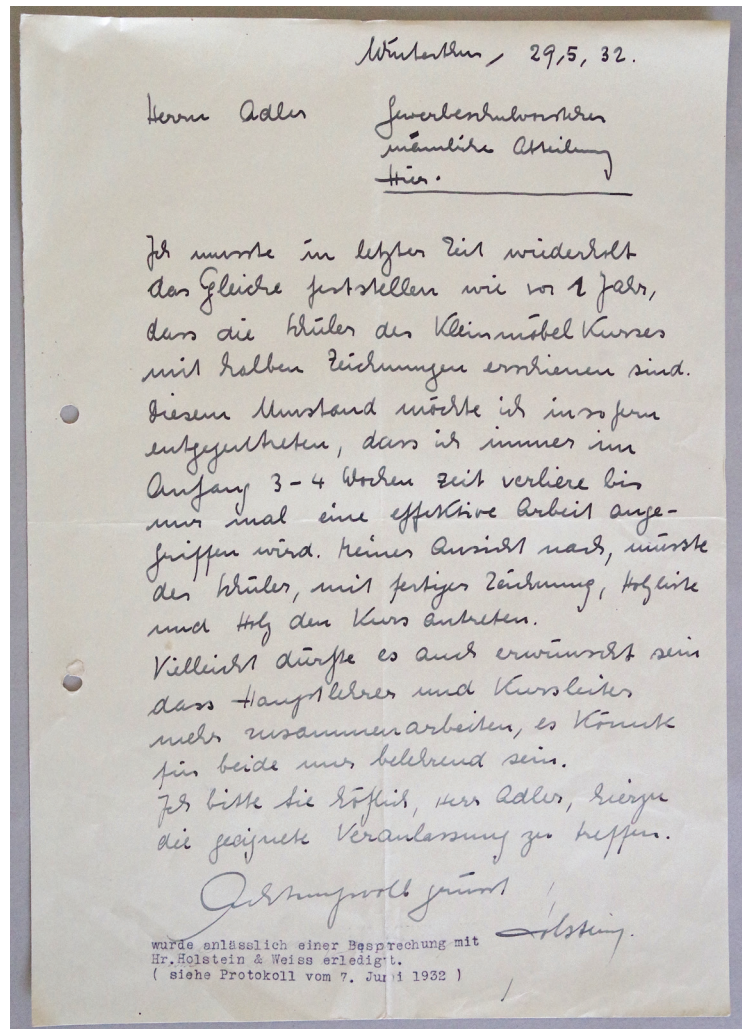 Winterthur, 29,5,32.
Herrn Adler Gewerbeschulvorsteher
männliche Abteilung
Hier.
Ich musste in letzter Zeit wiederholt
das Gleiche feststellen wie vor 1 Jahr,
dass die Schüler des Kleinmöbel Kurses
mit halben Zeichnungen erschienen sind.
Diesem Umstand möchte ich insofern
entgegentreten, dass ich immer im
Anfang 3-4 Wochen Zeit verliere bis
nur mal eine effektive Arbeit ange-
griffen wird. Meiner Ansicht nach, müsste
der Schüler, mit fertiger Zeichnung, Holzliste
und Holz den Kurs antreten.
Vielleicht dürfte es auch erwünscht sein
dass Hauptlehrer und Kursleiter
mehr zusammenarbeiten, es könnte
für beide nur belehrend sein.
Ich bitte Sie höflich, Herr Adler, hierzu
die geeignete Veranlassung zu treffen.
Achtungsvoll grüsst
Holstein.
wurde anlässlich einer Besprechung mit
Hr.Holstein & Weiss erledigt.
( siehe Protokoll vom 7. Juni 1932 )